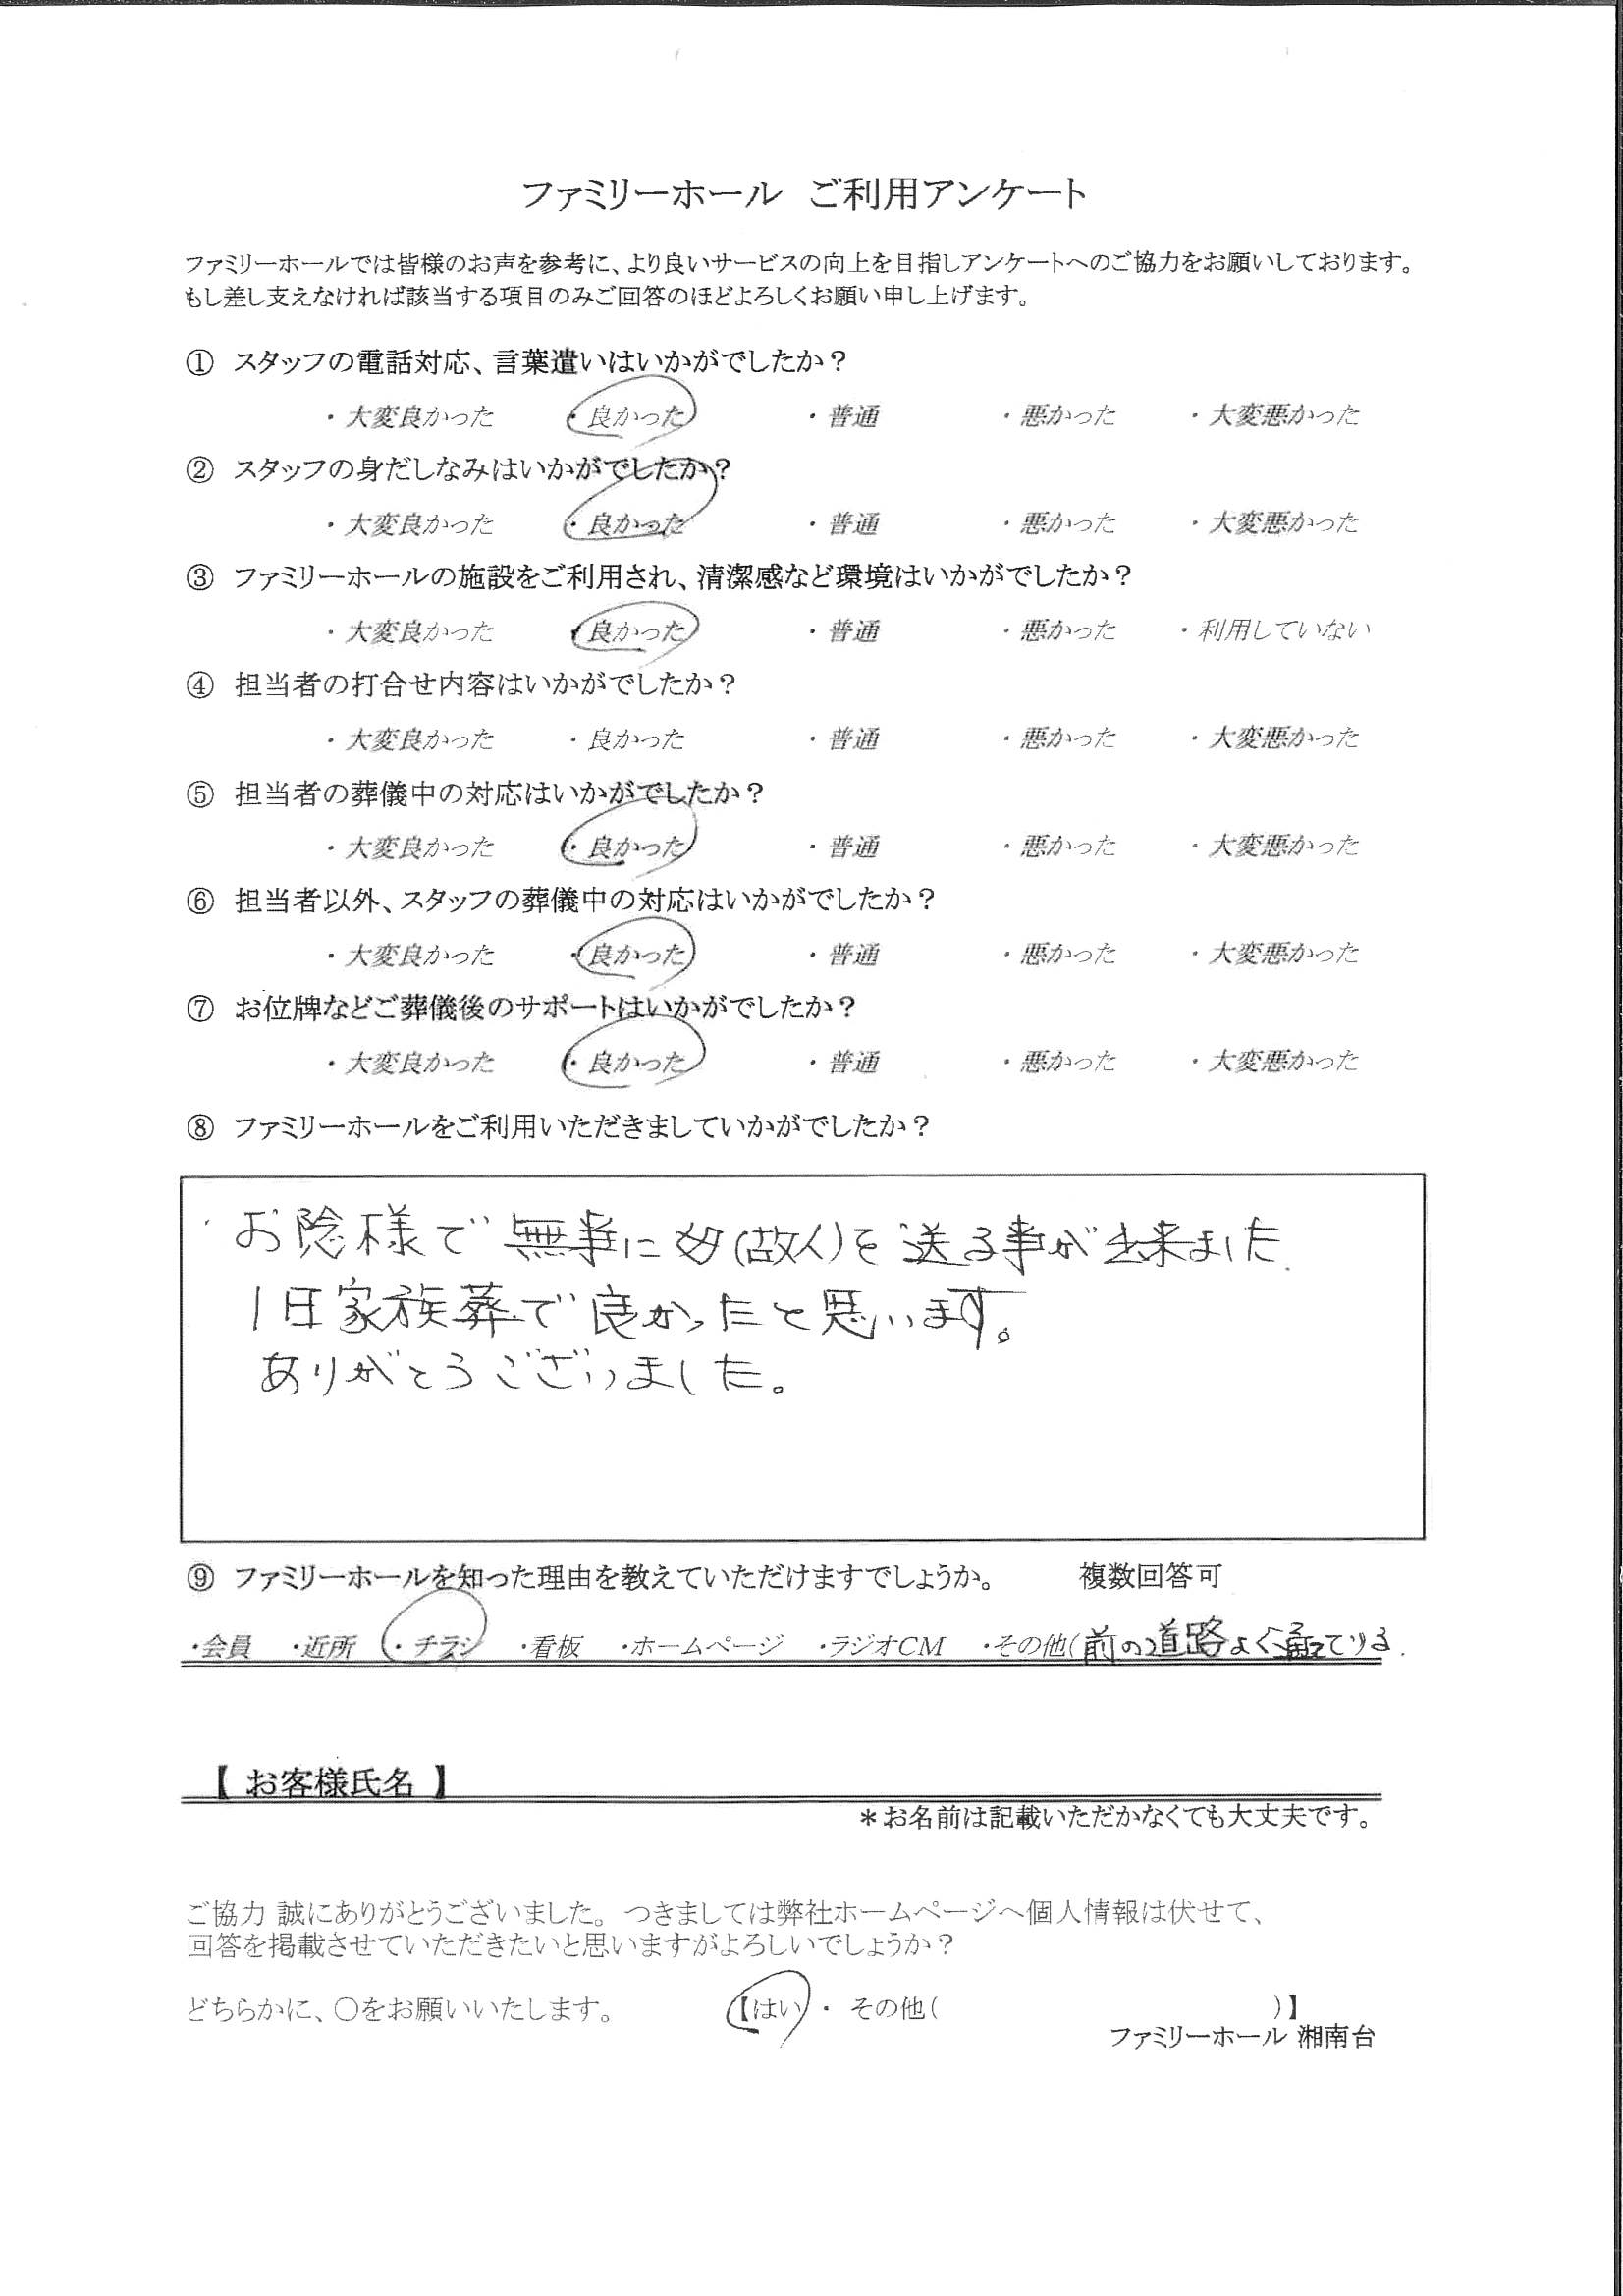 ファミリーホール ご利用アンケート
ファミリーホールでは皆様のお声を参考に、より良いサービスの向上を目指しアンケートへのご協力をお願いしております。
もし差し支えなければ該当する項目のみご回答のほどよろしくお願い申し上げます。
① スタッフの電話対応、言葉遣いはいかがでしたか？
・大変良かった ・良かった ・普通 ・悪かった ・大変悪かった
② スタッフの身だしなみはいかがでしたか？
・大変良かった ・良かった ・普通 ・悪かった ・大変悪かった
③ ファミリーホールの施設をご利用され、清潔感など環境はいかがでしたか？
・大変良かった ・良かった ・普通 ・悪かった ・利用していない
④ 担当者の打合せ内容はいかがでしたか？
・大変良かった ・良かった ・普通 ・悪かった ・大変悪かった
⑤ 担当者の葬儀中の対応はいかがでしたか？
・大変良かった ・良かった ・普通 ・悪かった ・大変悪かった
⑥ 担当者以外、スタッフの葬儀中の対応はいかがでしたか？
・大変良かった ・良かった ・普通 ・悪かった ・大変悪かった
⑦ お位牌などご葬儀後のサポートはいかがでしたか？
・大変良かった ・良かった ・普通 ・悪かった ・大変悪かった
⑧ ファミリーホールをご利用いただきましていかがでしたか？
お陰様で無事に母(故人)を送る事が出来ました
1日家族葬で良かったと思います。
ありがとうございました。
⑨ ファミリーホールを知った理由を教えていただけますでしょうか。 複数回答可
・会員 ・近所 ・チラシ ・看板 ・ホームページ ・ラジオCM ・その他(前の道路よく通っている.
【 お客様氏名 】
＊お名前は記載いただかなくても大丈夫です。
ご協力 誠にありがとうございました。つきましては弊社ホームページへ個人情報は伏せて、
回答を掲載させていただきたいと思いますがよろしいでしょうか？
どちらかに、〇をお願いいたします。 【はい ・ その他( )】
ファミリーホール 湘南台